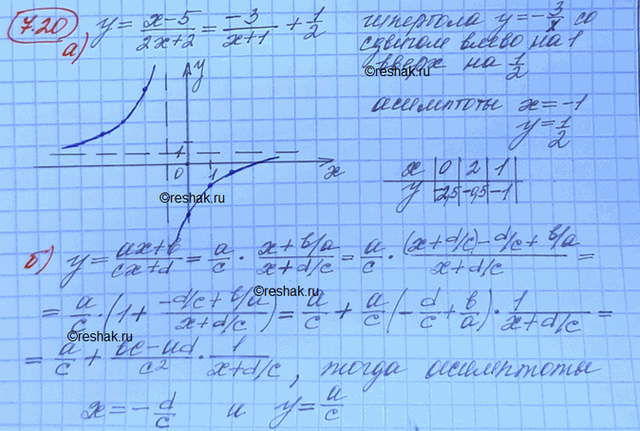 7.20
а) y = (x-5)/(2x+2) = (-3)/(x+1) + 1/2
гипербола y = -3/x со
сдвигом влево на 1
вверх на 1/2
©reshak.ru
асимптоты x = -1
y = 1/2
y
1
0 1 x
x | 0 | 2 | 1
y | -2,5 | -0,5 | -1
©reshak.ru
б) y = (ax+b)/(cx+d) = a/c · (x+b/a)/(x+d/c) = a/c · ((x+d/c)-d/c+b/a)/(x+d/c) =
©reshak.ru
= a/c · (1 + (-d/c+b/a)/(x+d/c)) = a/c + a/c (-d/c + b/a) · 1/(x+d/c) =
= a/c + (bc-ad)/c² · 1/(x+d/c), тогда асимптоты
x = -d/c и y = a/c